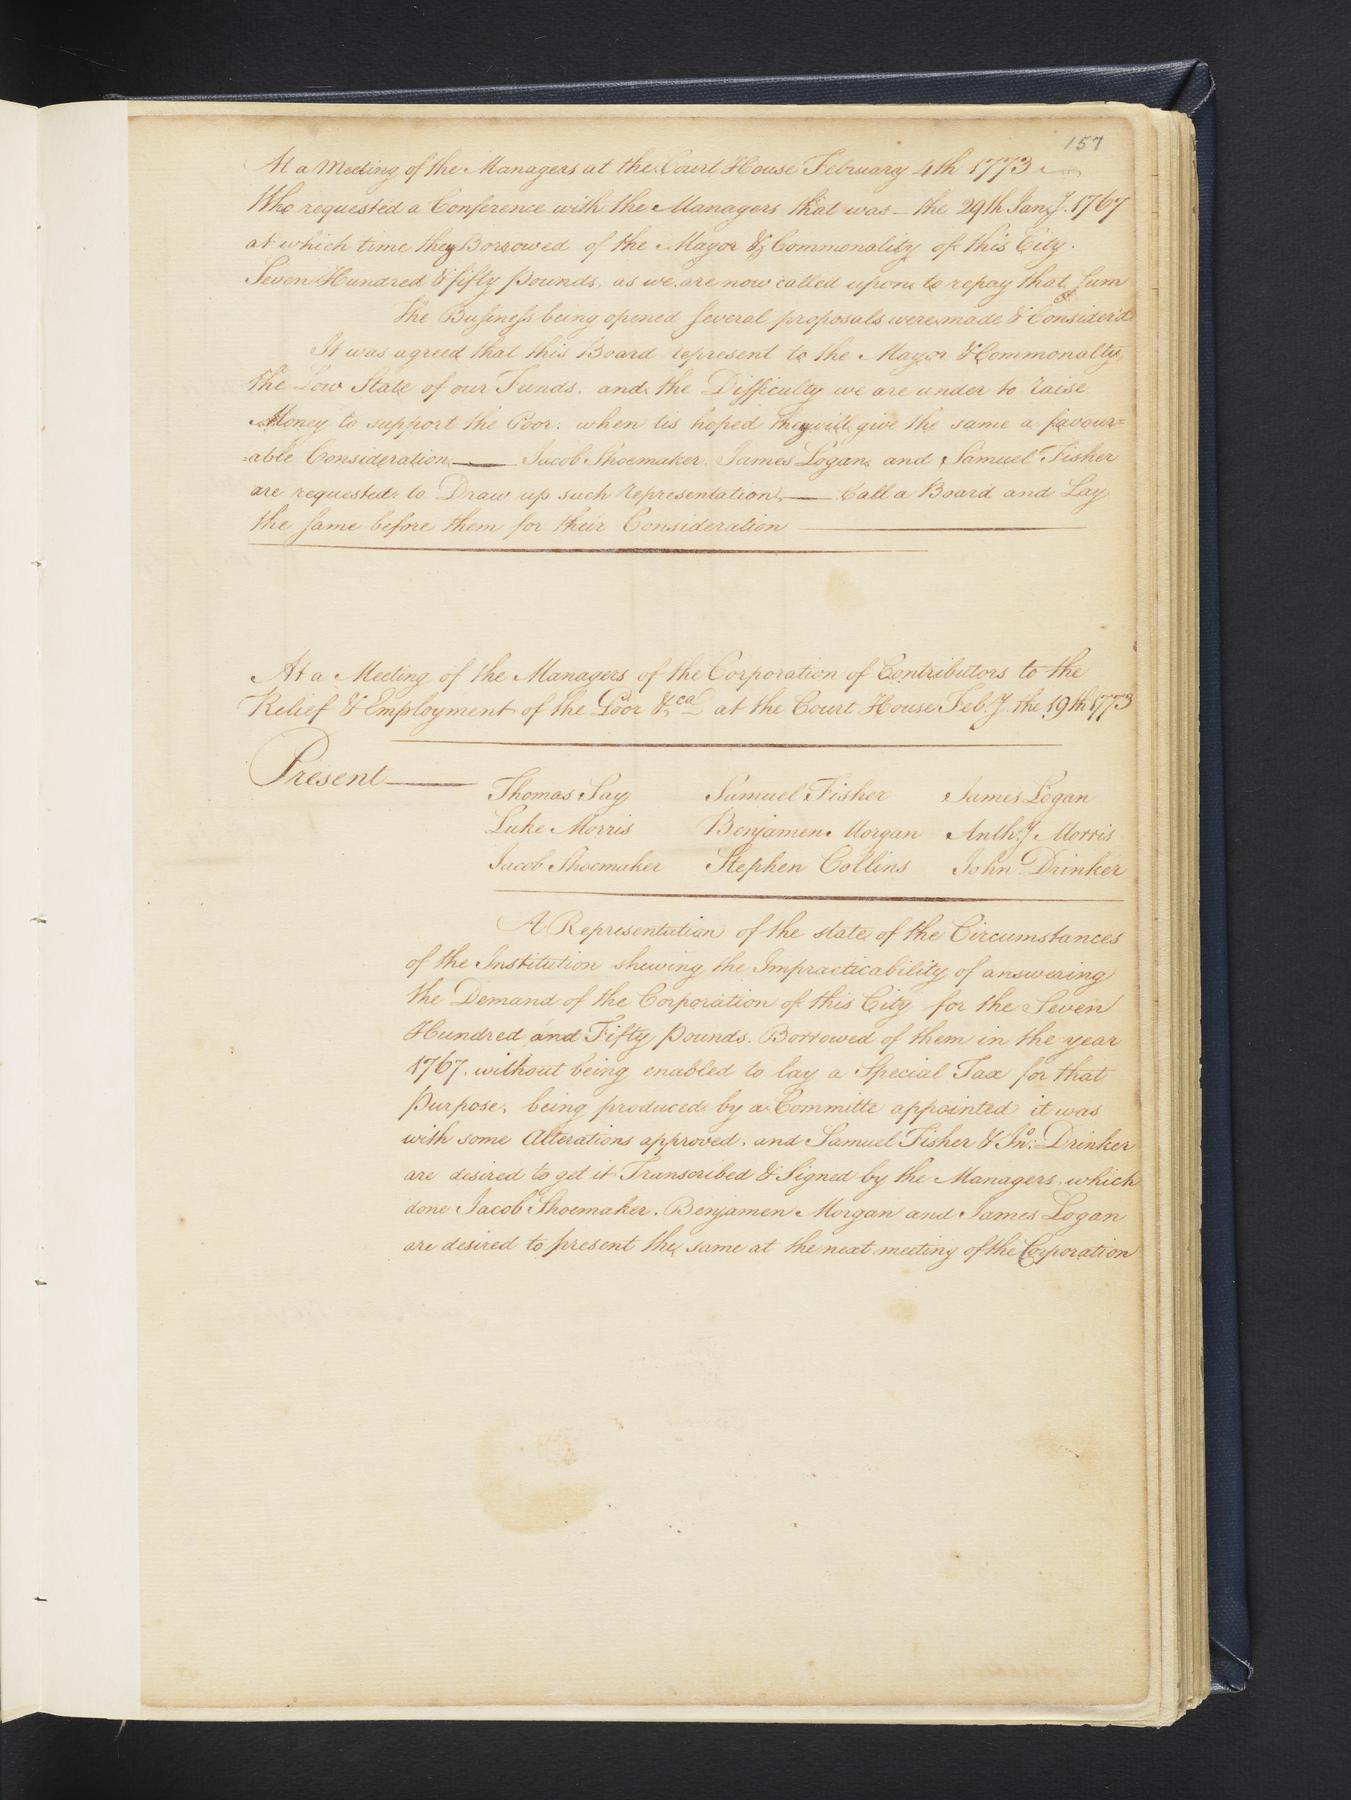 157
At a Meeting of the Managers at the Court House February 4th 1773
Who requested a Conference with the Managers that was – the 29th Jan.y 1767
at which time they Borrowed of the Mayor & Commonality of this City.
Seven Hundred & fifty Pounds. as we are now called upon to repay that Sum
The Business being opened several proposals were made & Consider'd
It was agreed that this Board represent to the Mayor & Commonalty
the Low State of our Funds. and the Difficulty we are under to raise
Money to support the Poor. when tis hoped they will give the same a favour=
=able Consideration — Jacob Shoemaker. James Logan and Samuel Fisher
are requested to Draw up such representation — Call a Board and Lay
the same before them for their Consideration —
At a Meeting of the Managers of the Corporation of Contributors to the
Relief & Employment of the Poor &ca at the Court House Feb.y the 19th 1773
Present — Thomas Say Samuel Fisher James Logan
Luke Morris Benjamen Morgan Anth.y Morris
Jacob Shoemaker Stephen Collins John Drinker
A Representation of the state of the Circumstances
of the Institution shewing the Impracticability of answering
the Demand of the Corporation of this City for the Seven
Hundred and Fifty Pounds. Borrowed of them in the year
1767. without being enabled to lay a Special Tax for that
Purpose, being produced by a Committe appointed it was
with some Alterations approved. and Samuel Fisher & Jno: Drinker
are desired to get it Transcribed & Signed by the Managers. which
done Jacob Shoemaker. Benjamen Morgan and James Logan
are desired to present the same at the next meeting of the Corporation